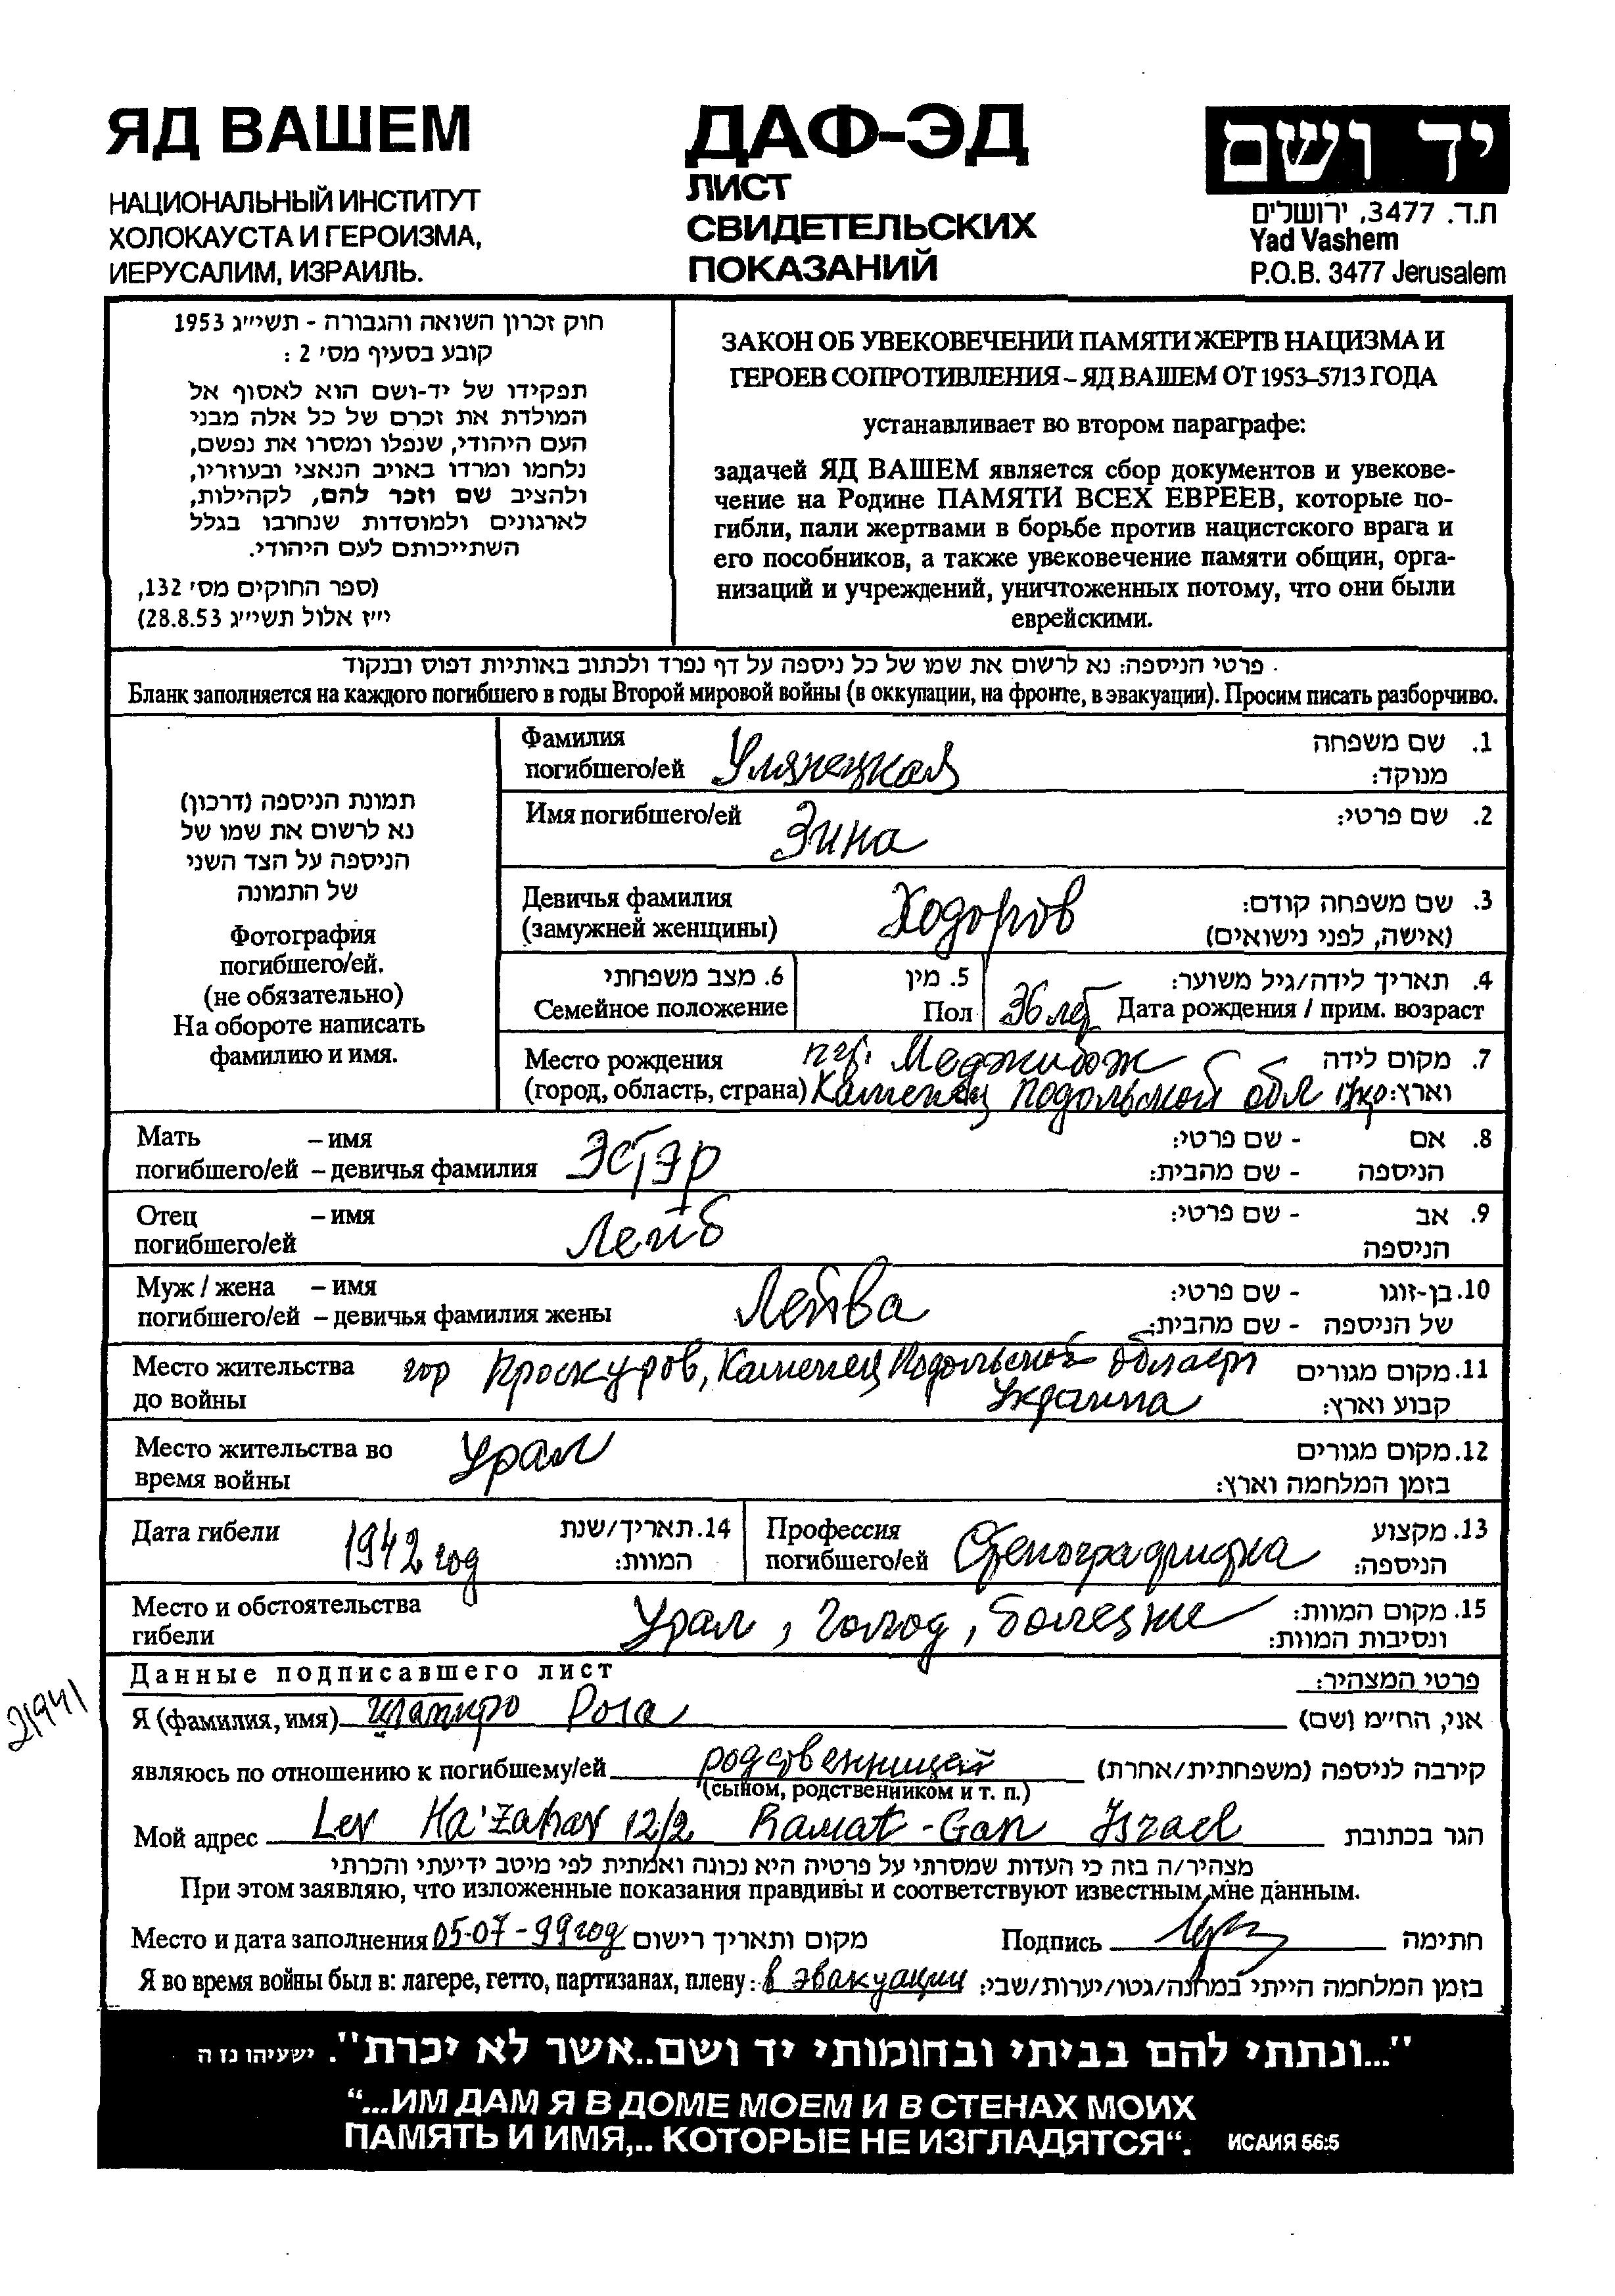 ЯД ВАШЕМ
НАЦИОНАЛЬНЫЙ ИНСТИТУТ
ХОЛОКАУСТА И ГЕРОИЗМА,
ИЕРУСАЛИМ, ИЗРАИЛЬ.
ДАФ-ЭД
ЛИСТ
СВИДЕТЕЛЬСКИХ
ПОКАЗАНИЙ
יד ושם
ת.ד. 3477, ירושלים
Yad Vashem
P.O.B. 3477 Jerusalem
חוק זכרון השואה והגבורה - תשי״ג 1953
קובע בסעיף מס׳ 2 :
תפקידו של יד-ושם הוא לאסוף אל
המולדת את זכרם של כל אלה מבני
העם היהודי, שנפלו ומסרו את נפשם,
נלחמו ומרדו באויב הנאצי ובעוזריו,
ולהציב שם וזכר להם, לקהילות,
לארגונים ולמוסדות שנחרבו בגלל
השתייכותם לעם היהודי.
(ספר החוקים מס׳ 132,
י״ז אלול תשי״ג 28.8.53)
ЗАКОН ОБ УВЕКОВЕЧЕНИИ ПАМЯТИ ЖЕРТВ НАЦИЗМА И
ГЕРОЕВ СОПРОТИВЛЕНИЯ – ЯД ВАШЕМ ОТ 1953–5713 ГОДА
устанавливает во втором параграфе:
задачей ЯД ВАШЕМ является сбор документов и увекове-
чение на Родине ПАМЯТИ ВСЕХ ЕВРЕЕВ, которые по-
гибли, пали жертвами в борьбе против нацистского врага и
его пособников, а также увековечение памяти общин, орга-
низаций и учреждений, уничтоженных потому, что они были
еврейскими.
פרטי הניספה: נא לרשום את שמו של כל ניספה על דף נפרד ולכתוב באותיות דפוס ובנקוד
Бланк заполняется на каждого погибшего в годы Второй мировой войны (в оккупации, на фронте, в эвакуации). Просим писать разборчиво.
תמונת הניספה (דרכון)
נא לרשום את שמו של
הניספה על הצד השני
של התמונה
Фотография
погибшего/ей.
(не обязательно)
На обороте написать
фамилию и имя.
Фамилия
погибшего/ей Улянецкая
1. שם משפחה
מנוקד:
Имя погибшего/ей Зина 2. שם פרטי:
Девичья фамилия
(замужней женщины) Ходоров
3. שם משפחה קודם:
(אישה, לפני נישואים)
6. מצב משפחתי
Семейное положение
5. מין
Пол
4. תאריך לידה/גיל משוער:
36 лет Дата рождения / прим. возраст
Место рождения пгт. Меджибож 7. מקום לידה
(город, область, страна) Каменец Подольской обл Укр וארץ:
Мать – имя Эстэр 8. אם - שם פרטי:
погибшего/ей – девичья фамилия הניספה - שם מהבית:
Отец – имя Лейб 9. אב - שם פרטי:
погибшего/ей הניספה
Муж / жена – имя Лейва 10. בן-זוגו - שם פרטי:
погибшего/ей – девичья фамилия жены של הניספה - שם מהבית:
Место жительства гор Проскуров, Каменец Подольской област 11. מקום מגורים
до войны Украина קבוע וארץ:
Место жительства во Урал 12. מקום מגורים
время войны בזמן המלחמה וארץ:
Дата гибели 1942 год 14. תאריך/שנת
המוות:
Профессия
погибшего/ей Стенографистка
13. מקצוע
הניספה:
Место и обстоятельства
гибели Урал, Голод, Болезни
15. מקום המוות:
ונסיבות המוות:
Данные подписавшего лист פרטי המצהיר:
Я (фамилия, имя) Шапиро Роза אני, הח״מ (שם)
являюсь по отношению к погибшему/ей родственницей קירבה לניספה (משפחתית/אחרת)
(сыном, родственником и т. п.)
Мой адрес Lev Ha'zahav 12/2 Ramat-Gan Israel הגר בכתובת
מצהיר/ה בזה כי העדות שמסרתי על פרטיה היא נכונה ואמתית לפי מיטב ידיעתי והכרתי
При этом заявляю, что изложенные показания правдивы и соответствуют известным мне данным.
Место и дата заполнения 05-07-99 год מקום ותאריך רישום Подпись חתימה
Я во время войны был в: лагере, гетто, партизанах, плену: в эвакуации בזמן המלחמה הייתי במחנה/גטו/יערות/שבי:
21941
"...ונתתי להם בביתי ובחומותי יד ושם..אשר לא יכרת". ישעיהו נו ה
“...ИМ ДАМ Я В ДОМЕ МОЕМ И В СТЕНАХ МОИХ
ПАМЯТЬ И ИМЯ,.. КОТОРЫЕ НЕ ИЗГЛАДЯТСЯ“. ИСАИЯ 56:5